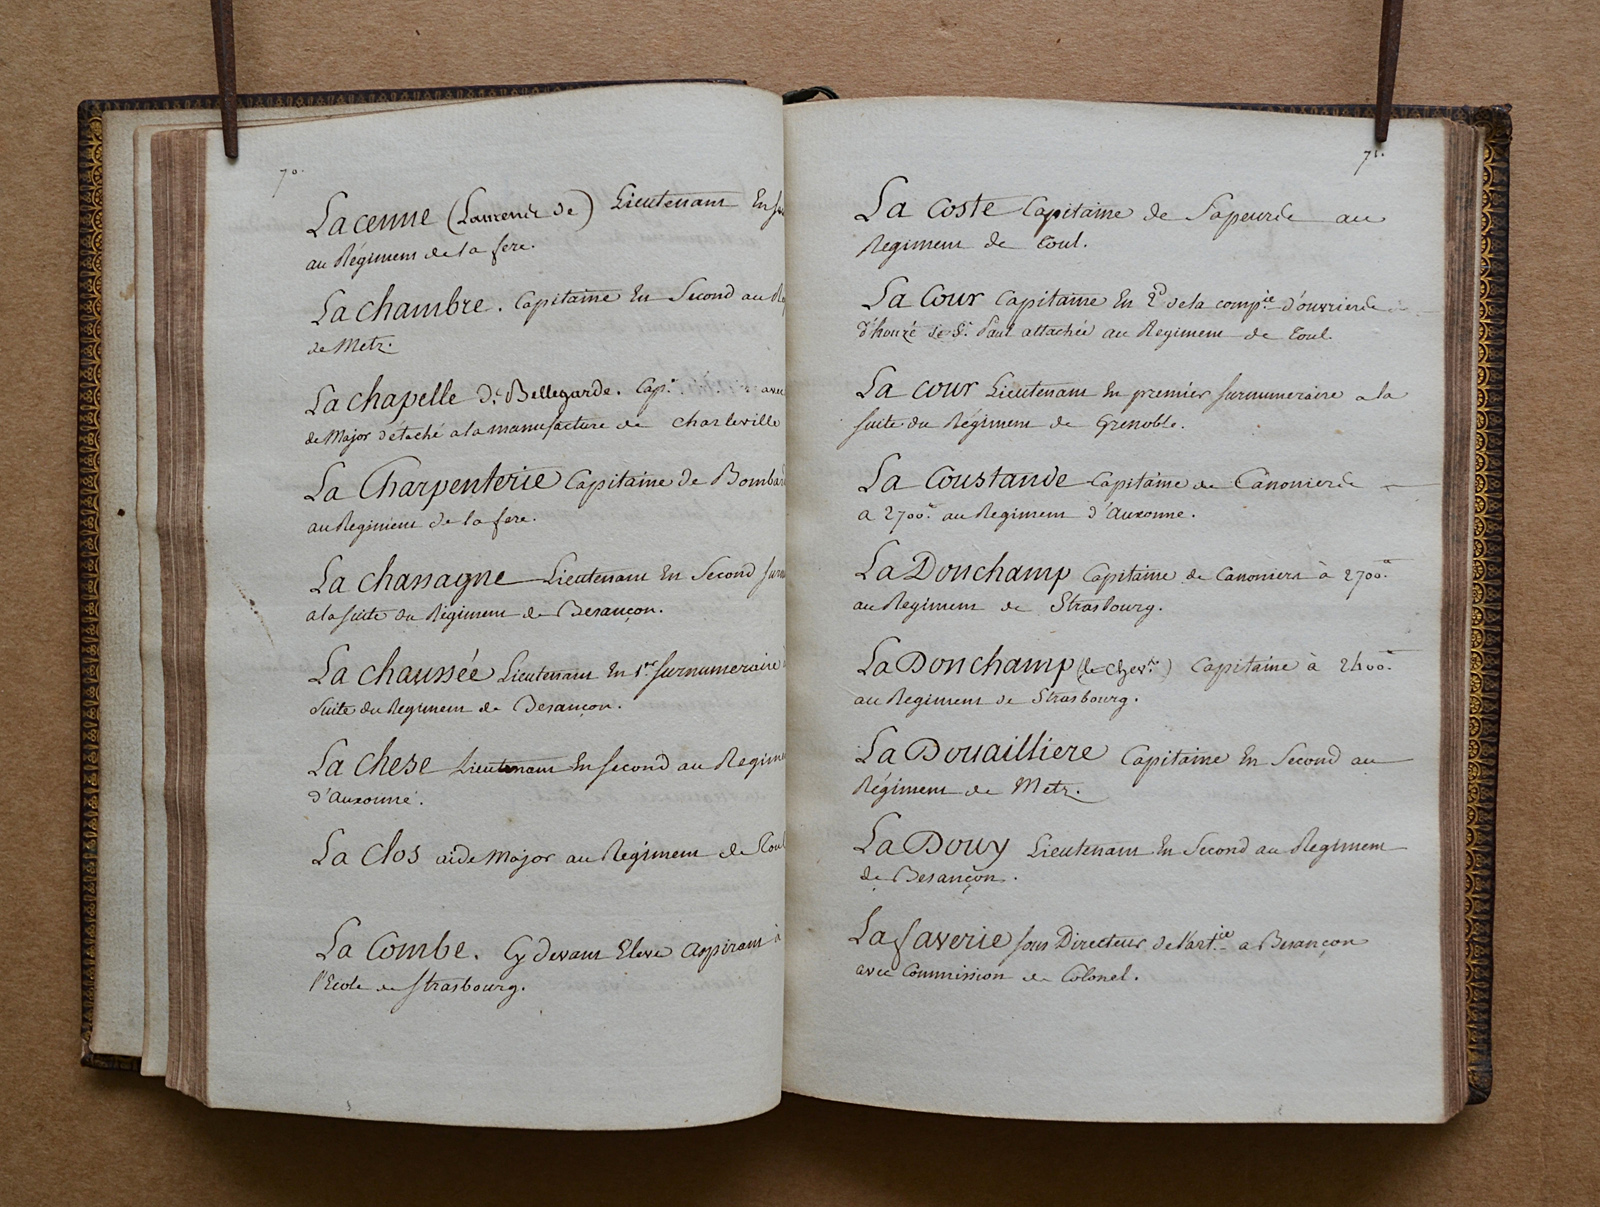 70.
La cenne (Laurende de) Lieutenant En
au Régiment de la fere.
La chambre. Capitaine En Second au
de Metz.
La chapelle D. Bellegarde. Cap.ne avec
de Major détaché a la manufacture de Charleville
La Charpenterie Capitaine de Bombar
au Regiment de la fere.
La chassagne Lieutenant En Second surn
a la suite du Régiment de Besançon.
La chaussée Lieutenant En 1.er surnumeraire
suite du Regiment de Besançon.
La chese Lieutenant En second au Regime
d'Auxonne.
La clos aide Major au Regiment de Toul
La Combe. Cy devant Eleve Aspirant à
l'Ecole de Strasbourg.
71.
La coste Capitaine de Sapeurs au
Regiment de Toul.
La Cour Capitaine En 2.d de la comp.ie d'ouvriers
d'houzé de S.t Paul attachée au Regiment de Toul.
La cour Lieutenant En premier surnumeraire a la
suite du Régiment de Grenoble.
La Coustande Capitaine de Canoniers
a 2700.tt au Regiment d'Auxonne.
La Donchamp Capitaine de Canoniers à 2700.tt
au Regiment de Strasbourg.
La Donchamp (le chev.er) Capitaine à 2400.tt
au Regiment de Strasbourg.
La Douailliere Capitaine En Second au
Régiment de Metz.
La Douy Lieutenant En Second au Regiment
de Besançon.
La faverie sous Directeur de l'art.ie a Besançon
avec Commission de Colonel.